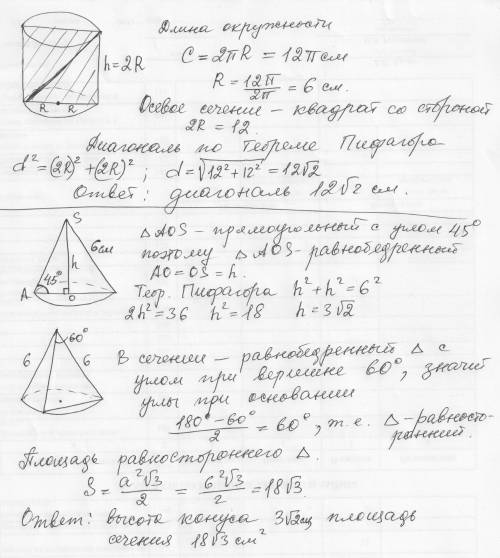 Длина окружности
C = 2πR = 12π см
h = 2R
R = 12π/2π = 6 см.
R R
Осевое сечение – квадрат со стороной
2R = 12.
Диагональ по Теореме Пифагора
d² = (2R)² + (2R)² ; d = √(12² + 12²) = 12√2
Ответ: диагональ 12√2 см.
S
6 см
h
45°
A O
△AOS – прямоугольный с углом 45°
поэтому △AOS – равнобедренный
AO = OS = h.
Теор. Пифагора h² + h² = 6²
2h² = 36 h² = 18 h = 3√2
60°
6 6
В сечении – равнобедренный △ с
углом при вершине 60°, значит
углы при основании
(180° – 60°)/2 = 60°, т.е. △ – равносто-
ронний.
Площадь равностороннего △.
S = a²√3/2 = 6²√3/2 = 18√3.
Ответ: высота конуса 3√2 см площадь
сечения 18√3 см²